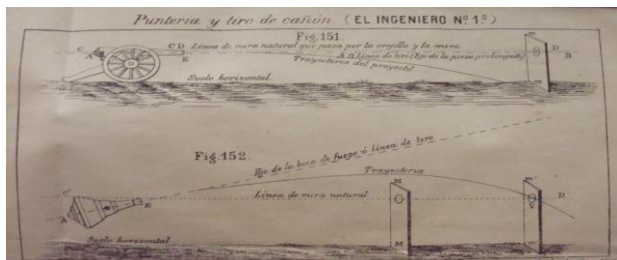 Puntería y tiro de cañón. (EL INGENIERO Nº 1º)
Fig. 151.
C
A
C D
E
Línea de mira natural que pasa por la orejilla y la mira
A B línea de tiro (Eje de la pieza prolongado)
Trayectoria del proyectil
Suelo horizontal
m
D
B
m
Fig. 152.
Eje de la boca de fuego ó línea de tiro
Trayectoria
Línea de mira natural
C
A
E
M
M
m
D
m
Suelo horizontal